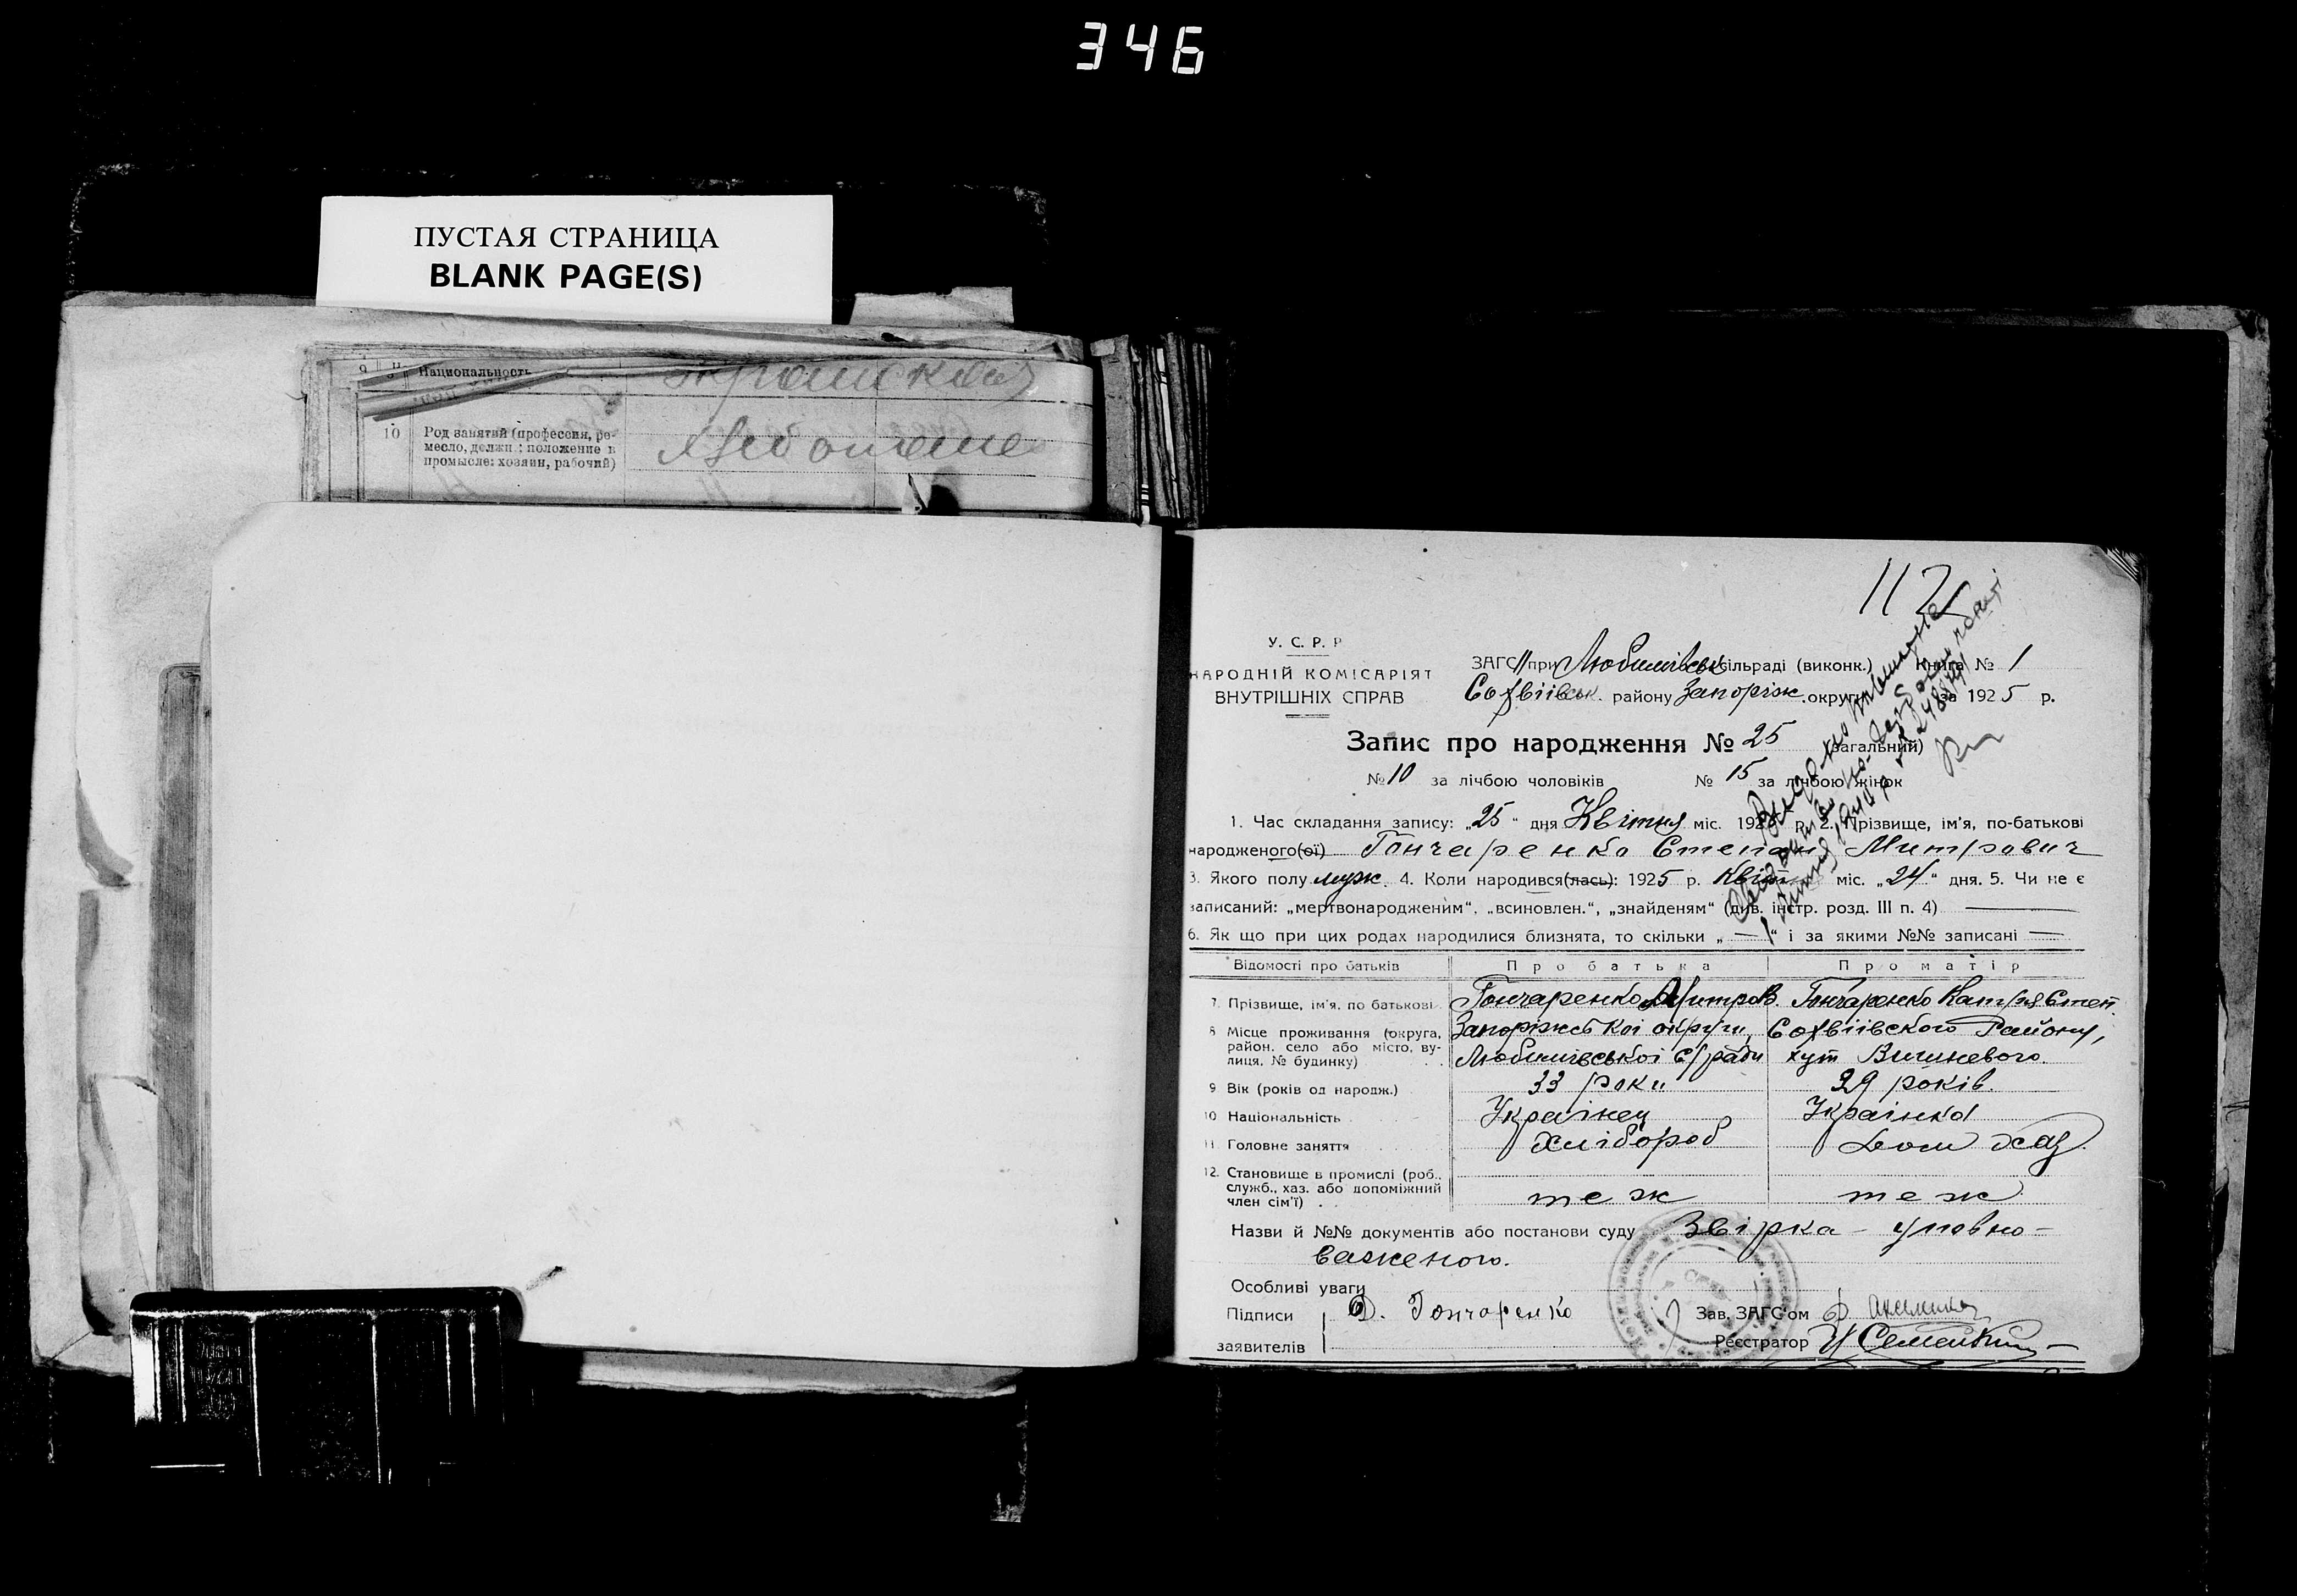 346
ПУСТАЯ СТРАНИЦА
BLANK PAGE(S)
9 Национальность
10 Род занятий (профессия, ре-
месло, должн.; положение в
промысле: хозяин, рабочий)
112
У. С. Р. Р
НАРОДНІЙ КОМІСАРІЯТ
ВНУТРІШНІХ СПРАВ
ЗАГС при Любимівськ сільраді (виконк.) Книга № 1
Софіївськ. району Запоріж. округи за 1925 р.
Запис про народження № 25 (загальний)
№ 10 за лічбою чоловіків № 15 за лічбою жінок
1. Час складання запису: „25“ дня Квітня міс. 1925 р. 2. Прізвище, ім'я, по-батькові
народженого(ої) Гончаренко Степан Митрович
3. Якого полу муж. 4. Коли народився(лась): 1925 р. Квіт міс. „24“ дня. 5. Чи не є
записаний: „мертвонародженим“, „всиновлен.“, „знайденям“ (див. інстр. розд. III п. 4) —
6. Як що при цих родах народилися близнята, то скільки „—“ і за якими №№ записані —
Відомості про батьків Про батька Про матір
7. Прізвище, ім'я, по батькові Гончаренко Митров. Гончаренко Катря Степ.
8 Місце проживання (округа, Запоріжської округи, Софіівского Району,
район, село або місто, ву-
лиця, № будинку) Любимівськоі с/ради хут Вишневого.
9 Вік (років од народж.) 33 роки 29 років.
10 Національність Українец Українка
11 Головне заняття Хлібороб дом хаз
12. Становище в промислі (роб.,
служб., хаз. або допоміжний
член сім'ї) . . теж теж
Назви й №№ документів або постанови суду Звірка - уповно-
важеного.
Особливі уваги
Підписи Д. Гончаренко Зав. ЗАГС'ом
заявителів Реєстратор